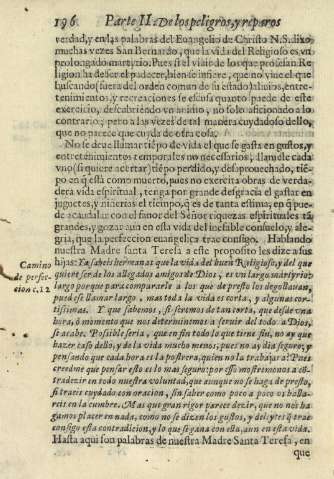 196 Parte II. De los peligros, y reparos
verdad, y en las palabras del Euangelio de Christo N. S. dixo
muchas vezes San Bernardo, que la vida del Religioso es vn
prolongado martyrio. Pues si el viaje de los que professan Re-
ligion ha de ser el padecer, bien se infiere, que no viue el que
buscando (fuera del orden comun de su estado) aliuios, entre-
tenimientos, y recreaciones se escusa quanto puede de este
exercicio, descubriendo vn animo, no solo aficionado a lo
contrario; pero a las vezes de tal manera cuydadoso dello,
que no parece que cuyda de otra cosa.
No se deue llamar tiẽpo de vida el que se gasta en gustos, y
entretenimientos temporales no necessarios, llamele cada
vno (si quiere acertar) tiẽpo perdido, y desaprouechado, tiẽ-
po en q̃ està como muerto, pues no exercita obras de verda-
dera vida espiritual, tenga por grande desgracia el gastar en
juguetes, y niñerias el tiempo, q̃ es de tanta estima, en q̃ pue-
de acaudalar con el fauor del Señor riquezas espirituales tã
grandes, y gozar aun en esta vida del inefable consuelo, y ale-
gria, que la perfeccion euangelica trae consigo. Hablando
nuestra Madre santa Teresa a este proposito les dize a sus
hijas: Ya sabeis hermanas que la vida del buen Religioso, y del que
quiere ser de los allegados amigos de Dios, es vn largo martyrio:
largo porque para compararle a los que de presto los degollauan,
puedese llamar largo, mas toda la vida es corta, y algunas cor-
tissimas. Y que sabemos, si seremos de tan corta, que desde vna
hora, ò momento que nos determinemos a seruir del todo a Dios,
se acabe. Possible seria, que en fin todo lo que tiene fin, no ay que
hazer caso dello; y de la vida mucho menos, pues no ay dia seguro; y
pensando que cada hora es la postrera, quien no la trabajarà? Pues
creedme que pensar esto es lo mas seguro: por esso mostremonos a cõ-
tradezir en todo nuestra voluntad, que aunque no se haga de presto,
si traeis cuydado con oracion, sin saber como poco a poco os halla-
reis en la cumbre. Mas que gran rigor parece dezir, que no nos ha-
gamos plazer en nada, como no se dizen los gustos, y deleytes q̃ trae
consigo esta contradicion, y lo que se gana con ella, aun en esta vida.
Hasta aqui son palabras de nuestra Madre Santa Teresa, en
que
Camino
de perfec-
cion c. 12